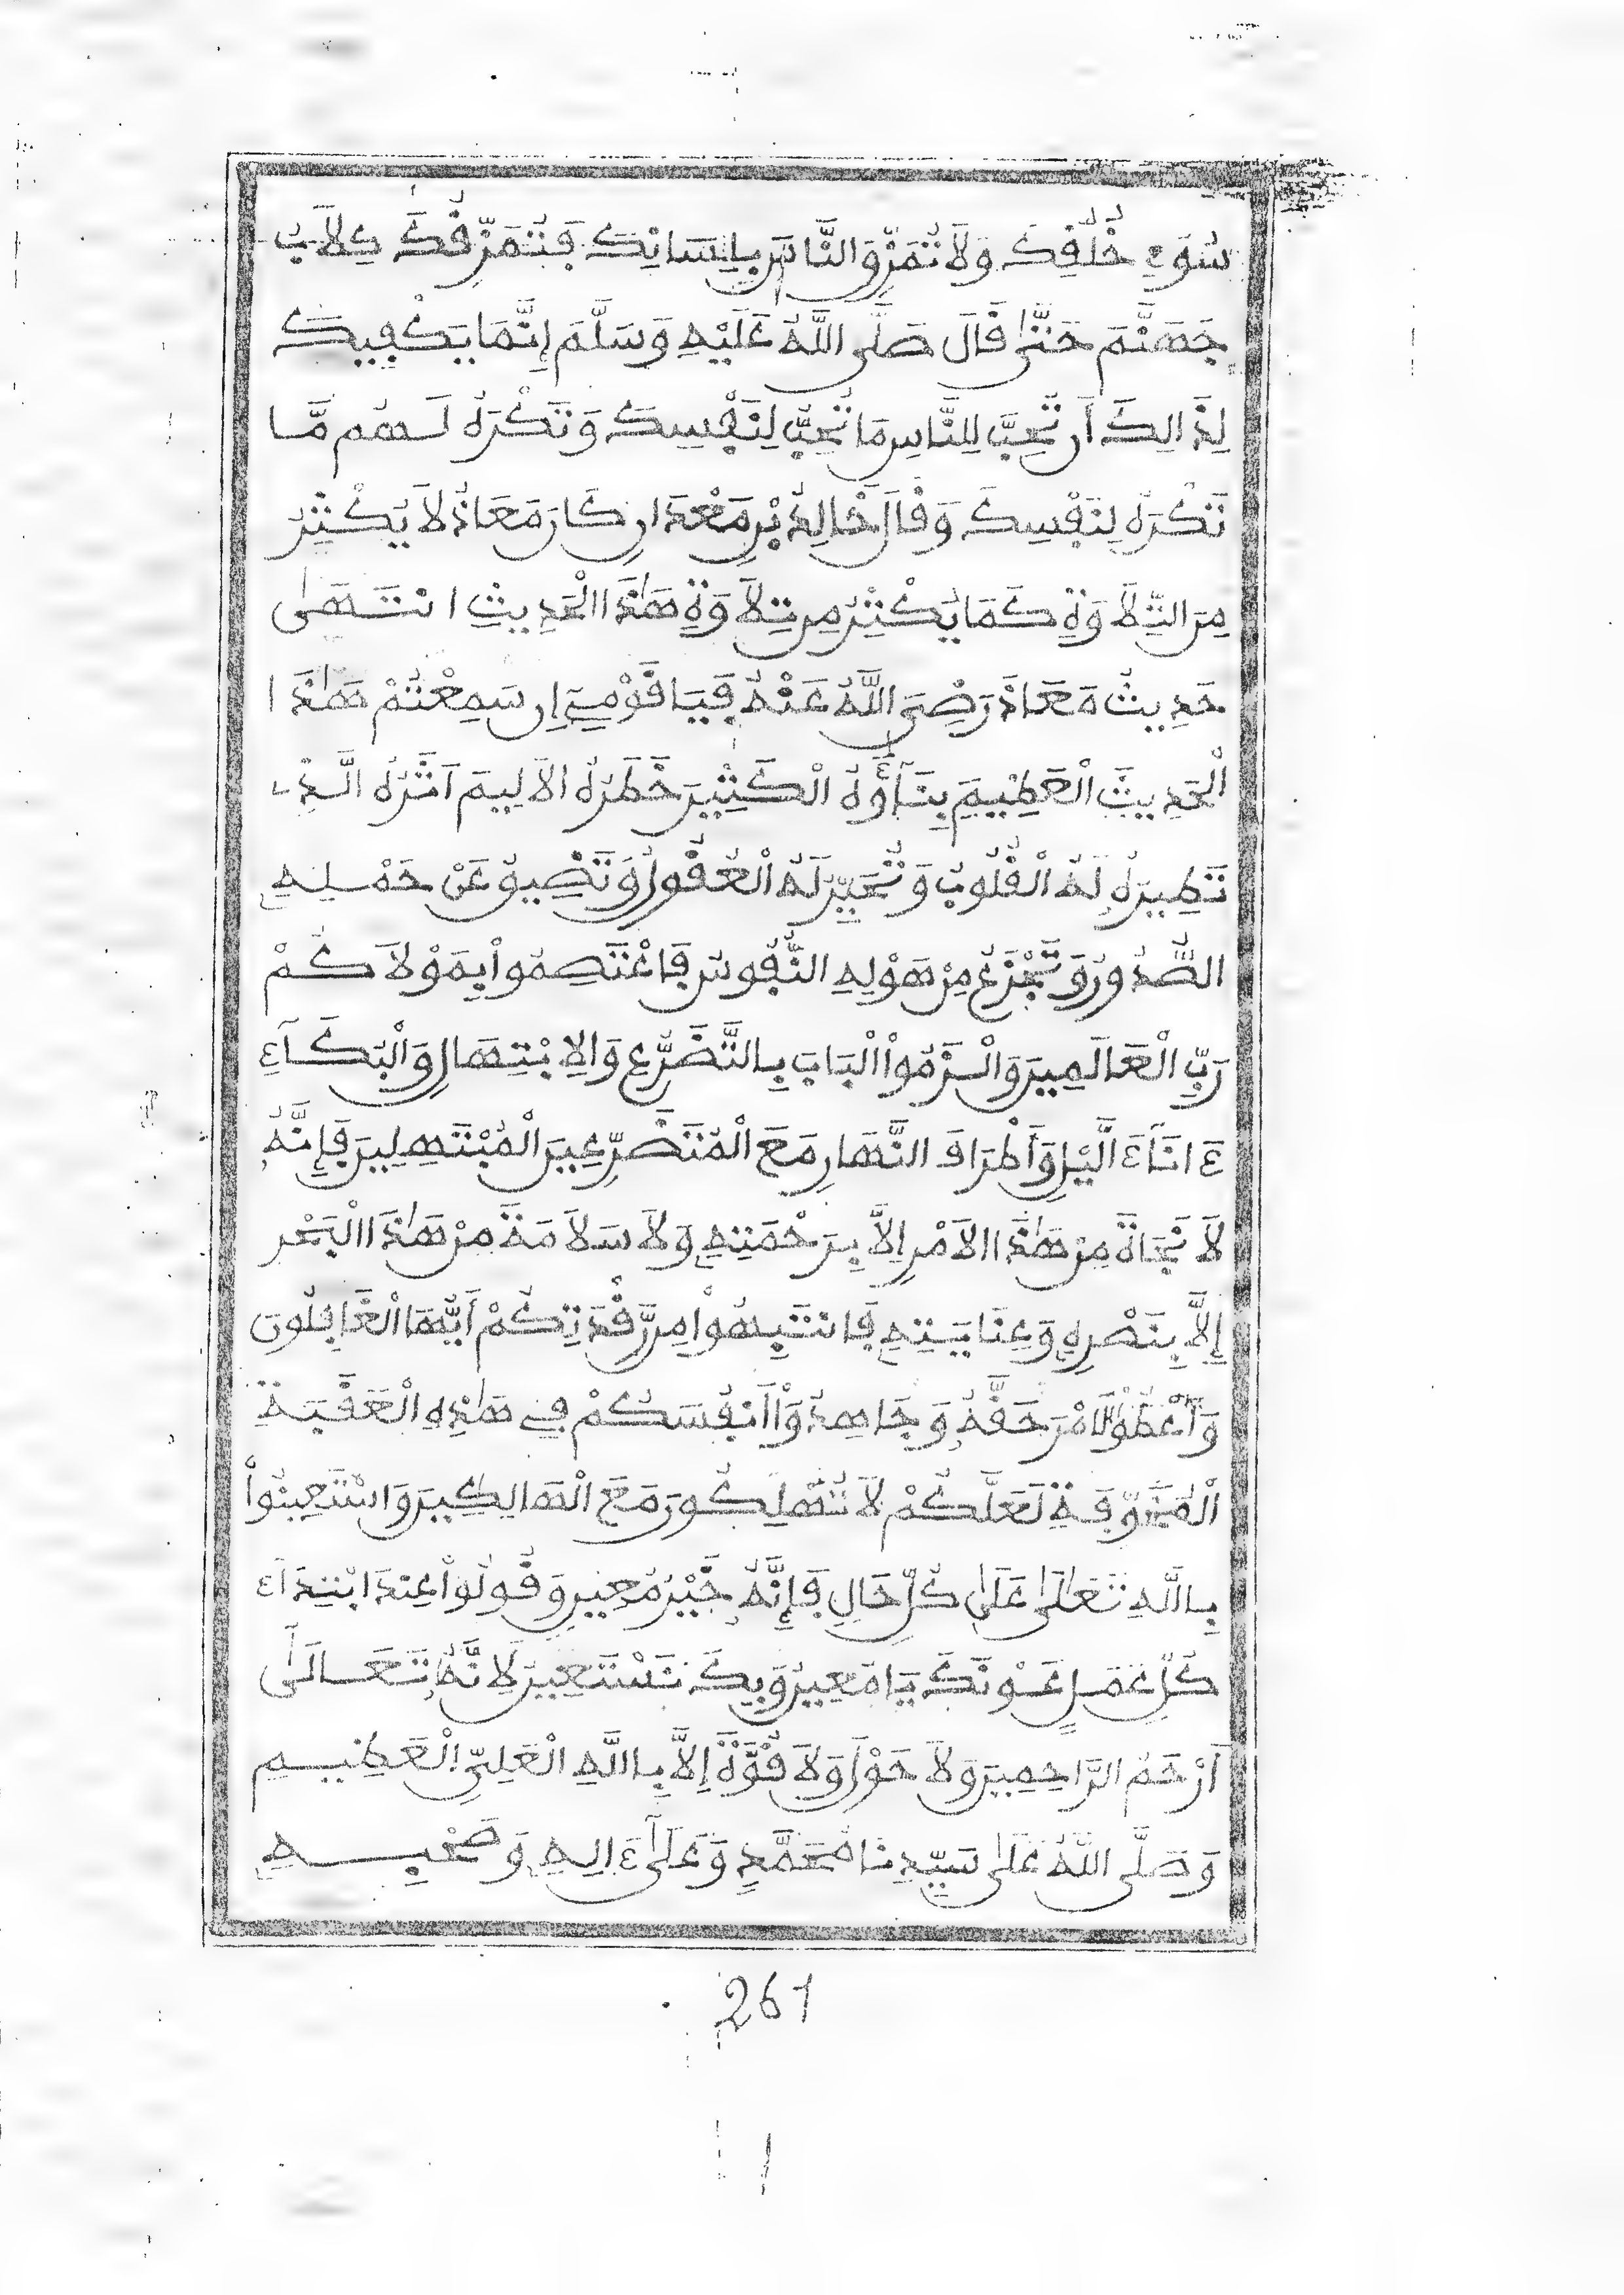 سُوءِ خُلُقِكَ وَلَا تُمَزِّقِ النَّاسَ بِلِسَانِكَ فَتُمَزِّقُكَ كِلَابُ
جَهَنَّمَ حَتَّىٰ قَالَ صَلَّى اللَّهُ عَلَيْهِ وَسَلَّمَ إِنَّمَا يَكْفِيكَ
لِذَالِكَ أَن تُحِبَّ لِلنَّاسِ مَا تُحِبُّ لِنَفْسِكَ وَتَكْرَهُ لَهُم مَّا
تَكْرَهُ لِنَفْسِكَ وَقَالَ خَالِدُ بْنِ مَعْدَانِ كَانَ مَعَاذُ لَا يُكْثِرُ
مِنَ التِّلَاوَةِ كَمَا يُكْثِرُ مِن تِلَاوَةِ هَٰذَا الْحَدِيثِ انتَهَىٰ
حَدِيثُ مَعَاذَ رَضِيَ اللَّهُ عَنْهُ فَيَا قَوْمِي إِن سَمِعْتُمْ هَٰذَا
الْحَدِيثَ الْعَظِيمَ بِنَآؤُهُ الْكَثِيرَ خَطَرُهُ الَالِيمَ اَثَرُهُ الَّذِي
تَطِيرُ لَهُ الْقُلُوبُ وَتُحَيِّرُ لَهُ الْعُقُولُ وَتَضِيقُ عَنْ حَمْلِهِ
الصُّدُورُ وَتَجْزَعُ مِنْ هَوْلِهِ النُّفُوسُ فَاعْتَصِمُواْ بِمَوْلَاكُمْ
رَبِّ الْعَالَمِينَ وَالْزَمُواْ الْبَابَ بِالتَّضَرُّعِ وَالِابْتِهَالِ وَالْبُكَآءِ
ءَانَآءَ الَّيْلِ وَأَطْرَافَ النَّهَارِ مَعَ الْمُتَضَرِّعِينَ الْمُبْتَهِلِينَ فَإِنَّهُ
لَا نَجَاةَ مِنْ هَٰذَا الَامْرِ إِلَّا بِرَحْمَتِهِ وَلَا سَلَامَةَ مِنْ هَٰذَا الْبَحْرِ
إِلَّا بِنَصْرِهِ وَعِنَايَتِهِ فَانتَبِهُواْ مِن رَّقْدَتِكُمْ أَيُّهَا الْغَافِلُونَ
وَأَعْطُواْ الَامْرَ حَقَّهُ وَجَاهِدُواْ أَنفُسَكُمْ فِي هَٰذِهِ الْعَقَبَةِ
الْمُخَوِّفَةِ لَعَلَّكُمْ لَا تُهْلِكُونَ مَعَ الْهَالِكِينَ وَاسْتَعِينُواْ
بِاللَّهِ تَعَالَىٰ عَلَىٰ كُلِّ حَالٍ فَإِنَّهُ خَيْرُ مُعِينٍ وَقُولُواْ عِندَ ابْتِدَآءِ
كُلِّ عَمَلٍ عَوْنَكَ يَا مُعِينُ وَبِكَ نَسْتَعِينُ لِانَّهُ تَعَالَىٰ
أَرْحَمُ الرَّاحِمِينَ وَلَا حَوْلَ وَلَا قُوَّةَ إِلَّا بِاللَّهِ الْعَلِيِّ الْعَظِيمِ
وَصَلَّى اللَّهُ عَلَىٰ سَيِّدِنَا مُحَمَّدٍ وَعَلَىٰ ءَالِهِ وَصَحْبِهِ
261